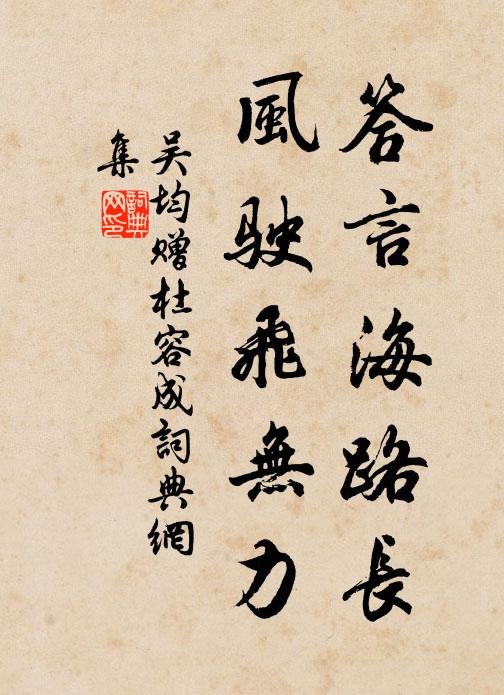 答言海路長
風駛飛無力
吳均贈杜容成詞典網
集
詞典
网印